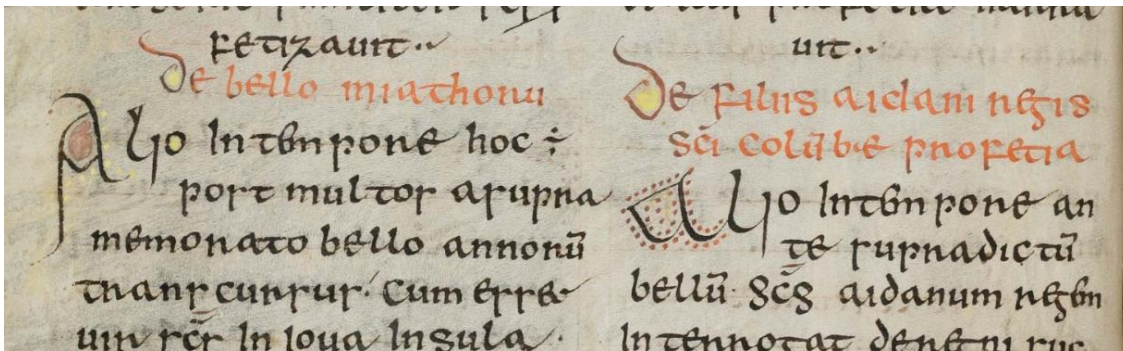 fetizauit··
De bello miathoru
Alio in tempore hoc ÷
post multos a supra
memorato bello annorū
transcursus· Cum esse
uir sc̄s in ioua insula·
uit··
De filiis aidani regis
sc̄i colūbae profetia
Alio in tempore an
te supradictū
bellū· sc̄s aidanum regem
interrogat de regni suc